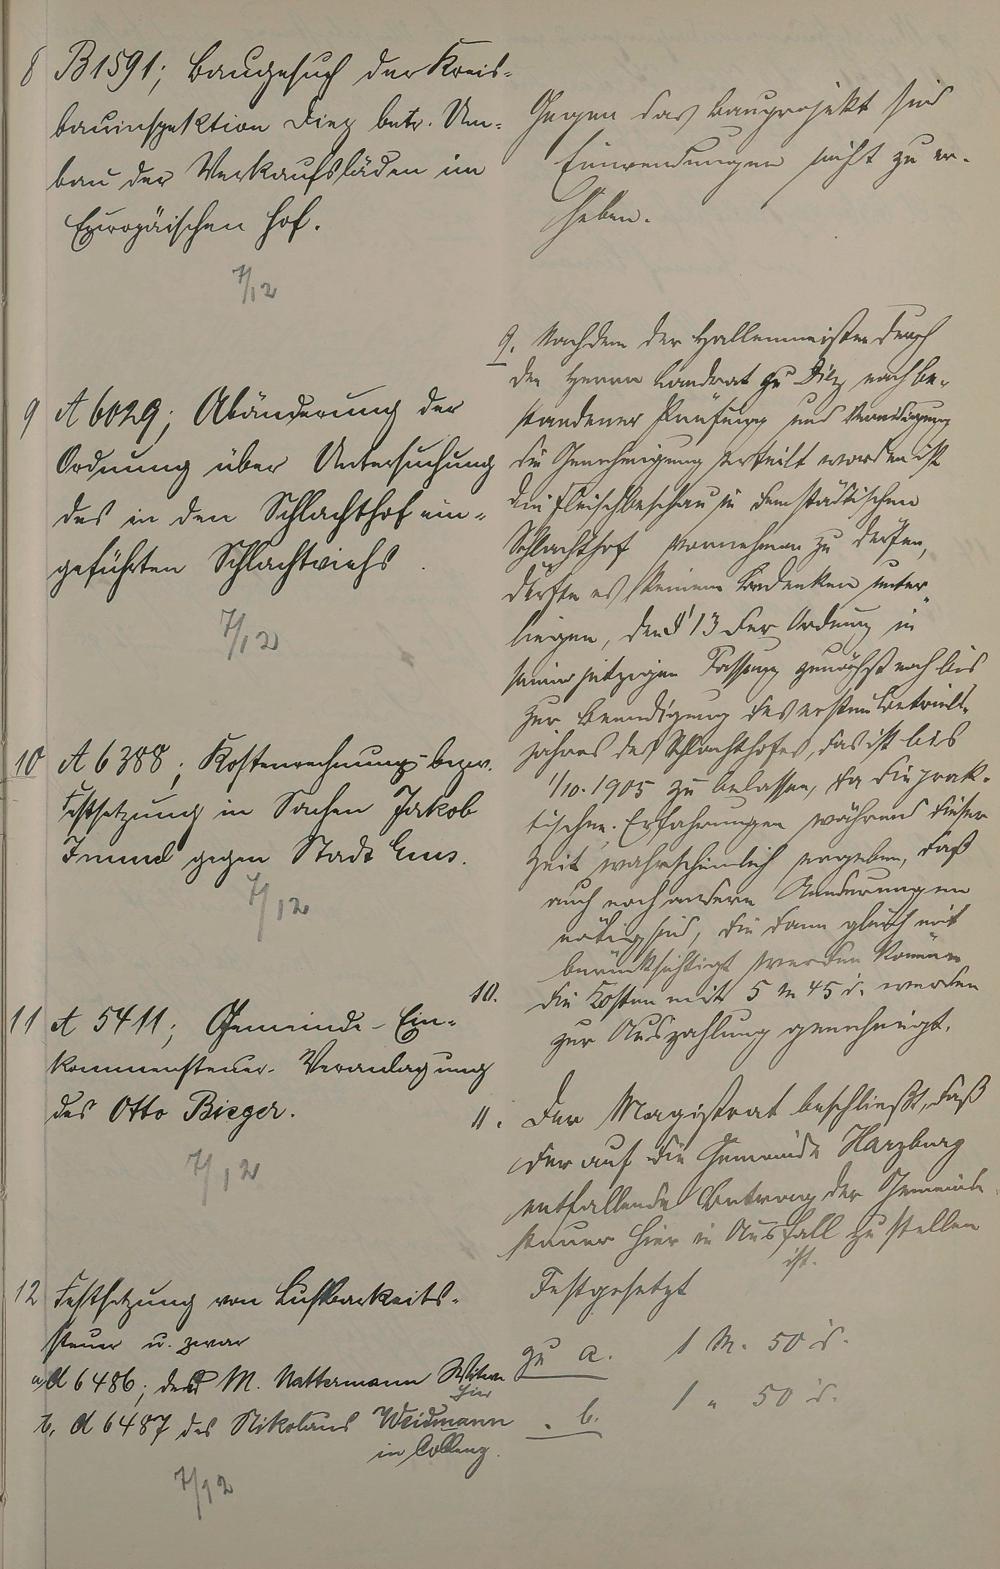 8 B 1591; Baugesuch der Kreis-
bauinspektion Diez betr. Um-
bau der Verkaufsläden im
Europäischen Hof.
7/12
Gegen das Bauprojekt sind
Einwendungen nicht zu er-
heben.
9 A 6029; Abänderung der
Ordnung über Untersuchung
des in den Schlachthof ein-
geführten Schlachtviehs
7/12
9. Nachdem der Hallenmeister durch
den Herrn Landrat zu Diez nach be-
standener Prüfung und Vereidigung
die Genehmigung erteilt worden ist
die Fleischbeschau in dem städtischen
Schlachthof vornehmen zu dürfen,
dürfte es keinem Bedenken unter-
liegen, den § 13 der Ordnung in
seiner jetzigen Fassung zunächst noch bis
zur Beendigung des ersten Betriebs-
jahres des Schlachthofes, das ist bis
1/10. 1905 zu belassen, da die prak-
tischen Erfahrungen während dieser
Zeit wahrscheinlich ergeben, daß
auch noch andere Aenderungen
nötig sind, die dann gleich mit
berücksichtigt werden können
10 A 6388; Kostenrechnung- bezw.
Festsetzung in Sachen Jakob
gegen Stadt Ems.
7/12
10. Die Kosten mit 5 M 45 d. werden
zur Auszahlung genehmigt.
11 A 5411; Gemeinde-Ein-
kommensteuer-Veranlagung
des Otto Bieger.
7/12
11. Der Magistrat beschließt, daß
der auf die Gemeinde Harzburg
entfallende Betrag der Gemeinde-
steuer hier in Ausfall zu stellen
ist.
12 Festsetzung von Lustbarkeits-
steuer u. zwar
a, A 6486; des M. Nattermann Witwe
hier
b, A 6487 des Nikolaus Weidmann
in
7/12
Festgesetzt
zu a. 1 M. 50 d.
" b. 1 " 50 d.